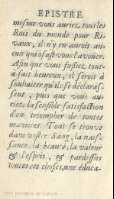 EPISTRE
mesme vous auriez tous les
Rois du monde pour Ri-
vaux, il n'y en auroit au-
cun qui
Afin que vous fussiez tout-
à-fait heureux, il seroit à
souhaiter qu'ils se declaras-
sent, puis que vous au-
riez la sensible satisfaction
d'en triompher de toutes
manieres. Tout se trouve
dans vostre Sang, la nais-
sance, la beauté, la valeur
& l'esprit, &
toutes ces choses, une éduca-